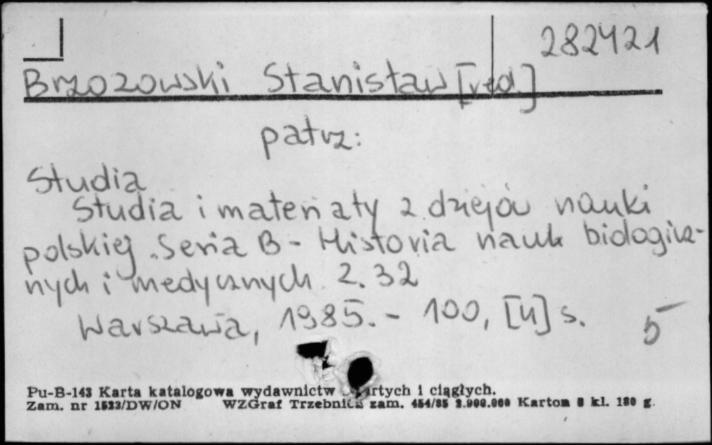 282421
Brzozowski Stanisław [red.]
patrz:
Studia
Studia i materiały z dziejów nauki
polskiej. Seria B - Historia nauk biologicz-
nych i medycznych z. 32
Warszawa, 1985. - 100, [4] s.
5
Pu-B-143 Karta katalogowa wydawnictw zwartych i ciągłych.
Zam. nr 1523/DW/ON WZGraf Trzebnica zam. 454/85 2.000.000 Karton 8 kl. 180 g.